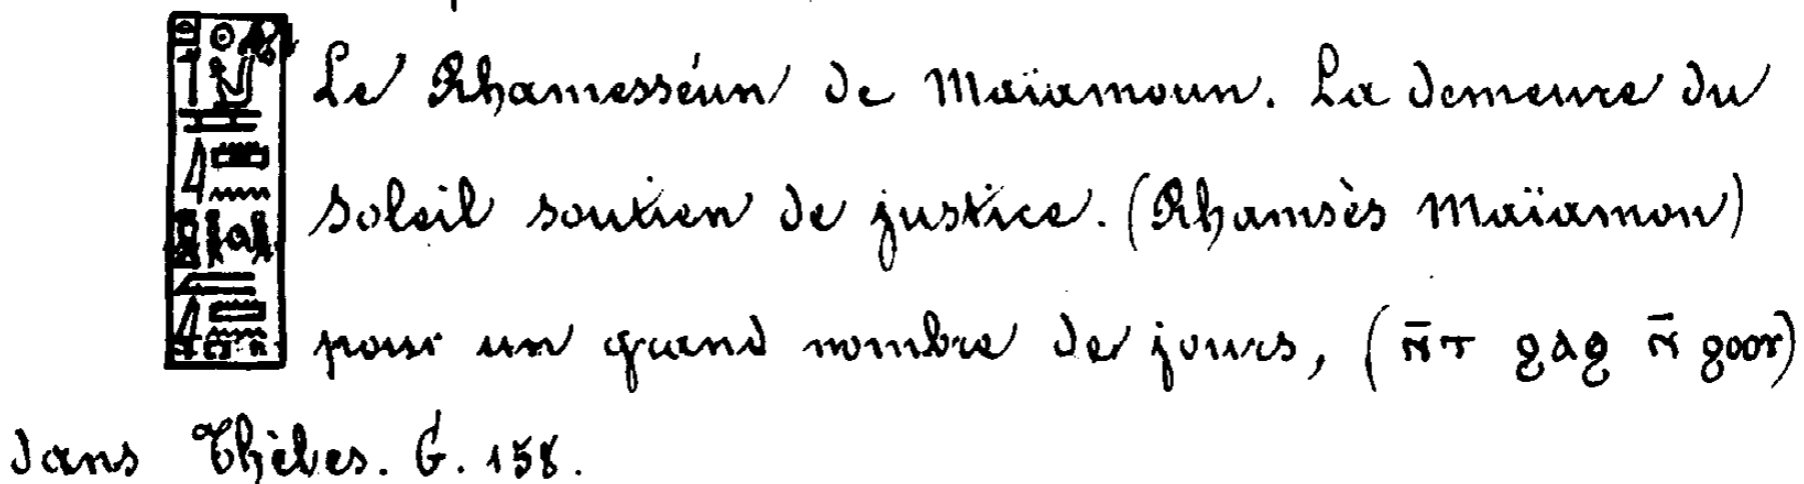 Le Rhamesséun de Maïamoun. La demeure du
soleil soutien de justice. (Rhamsès Maïamon)
pour un grand nombre de jours, (n̄т ϩаϩ n̄ ϩооʏ)
dans Thèbes. G. 158.